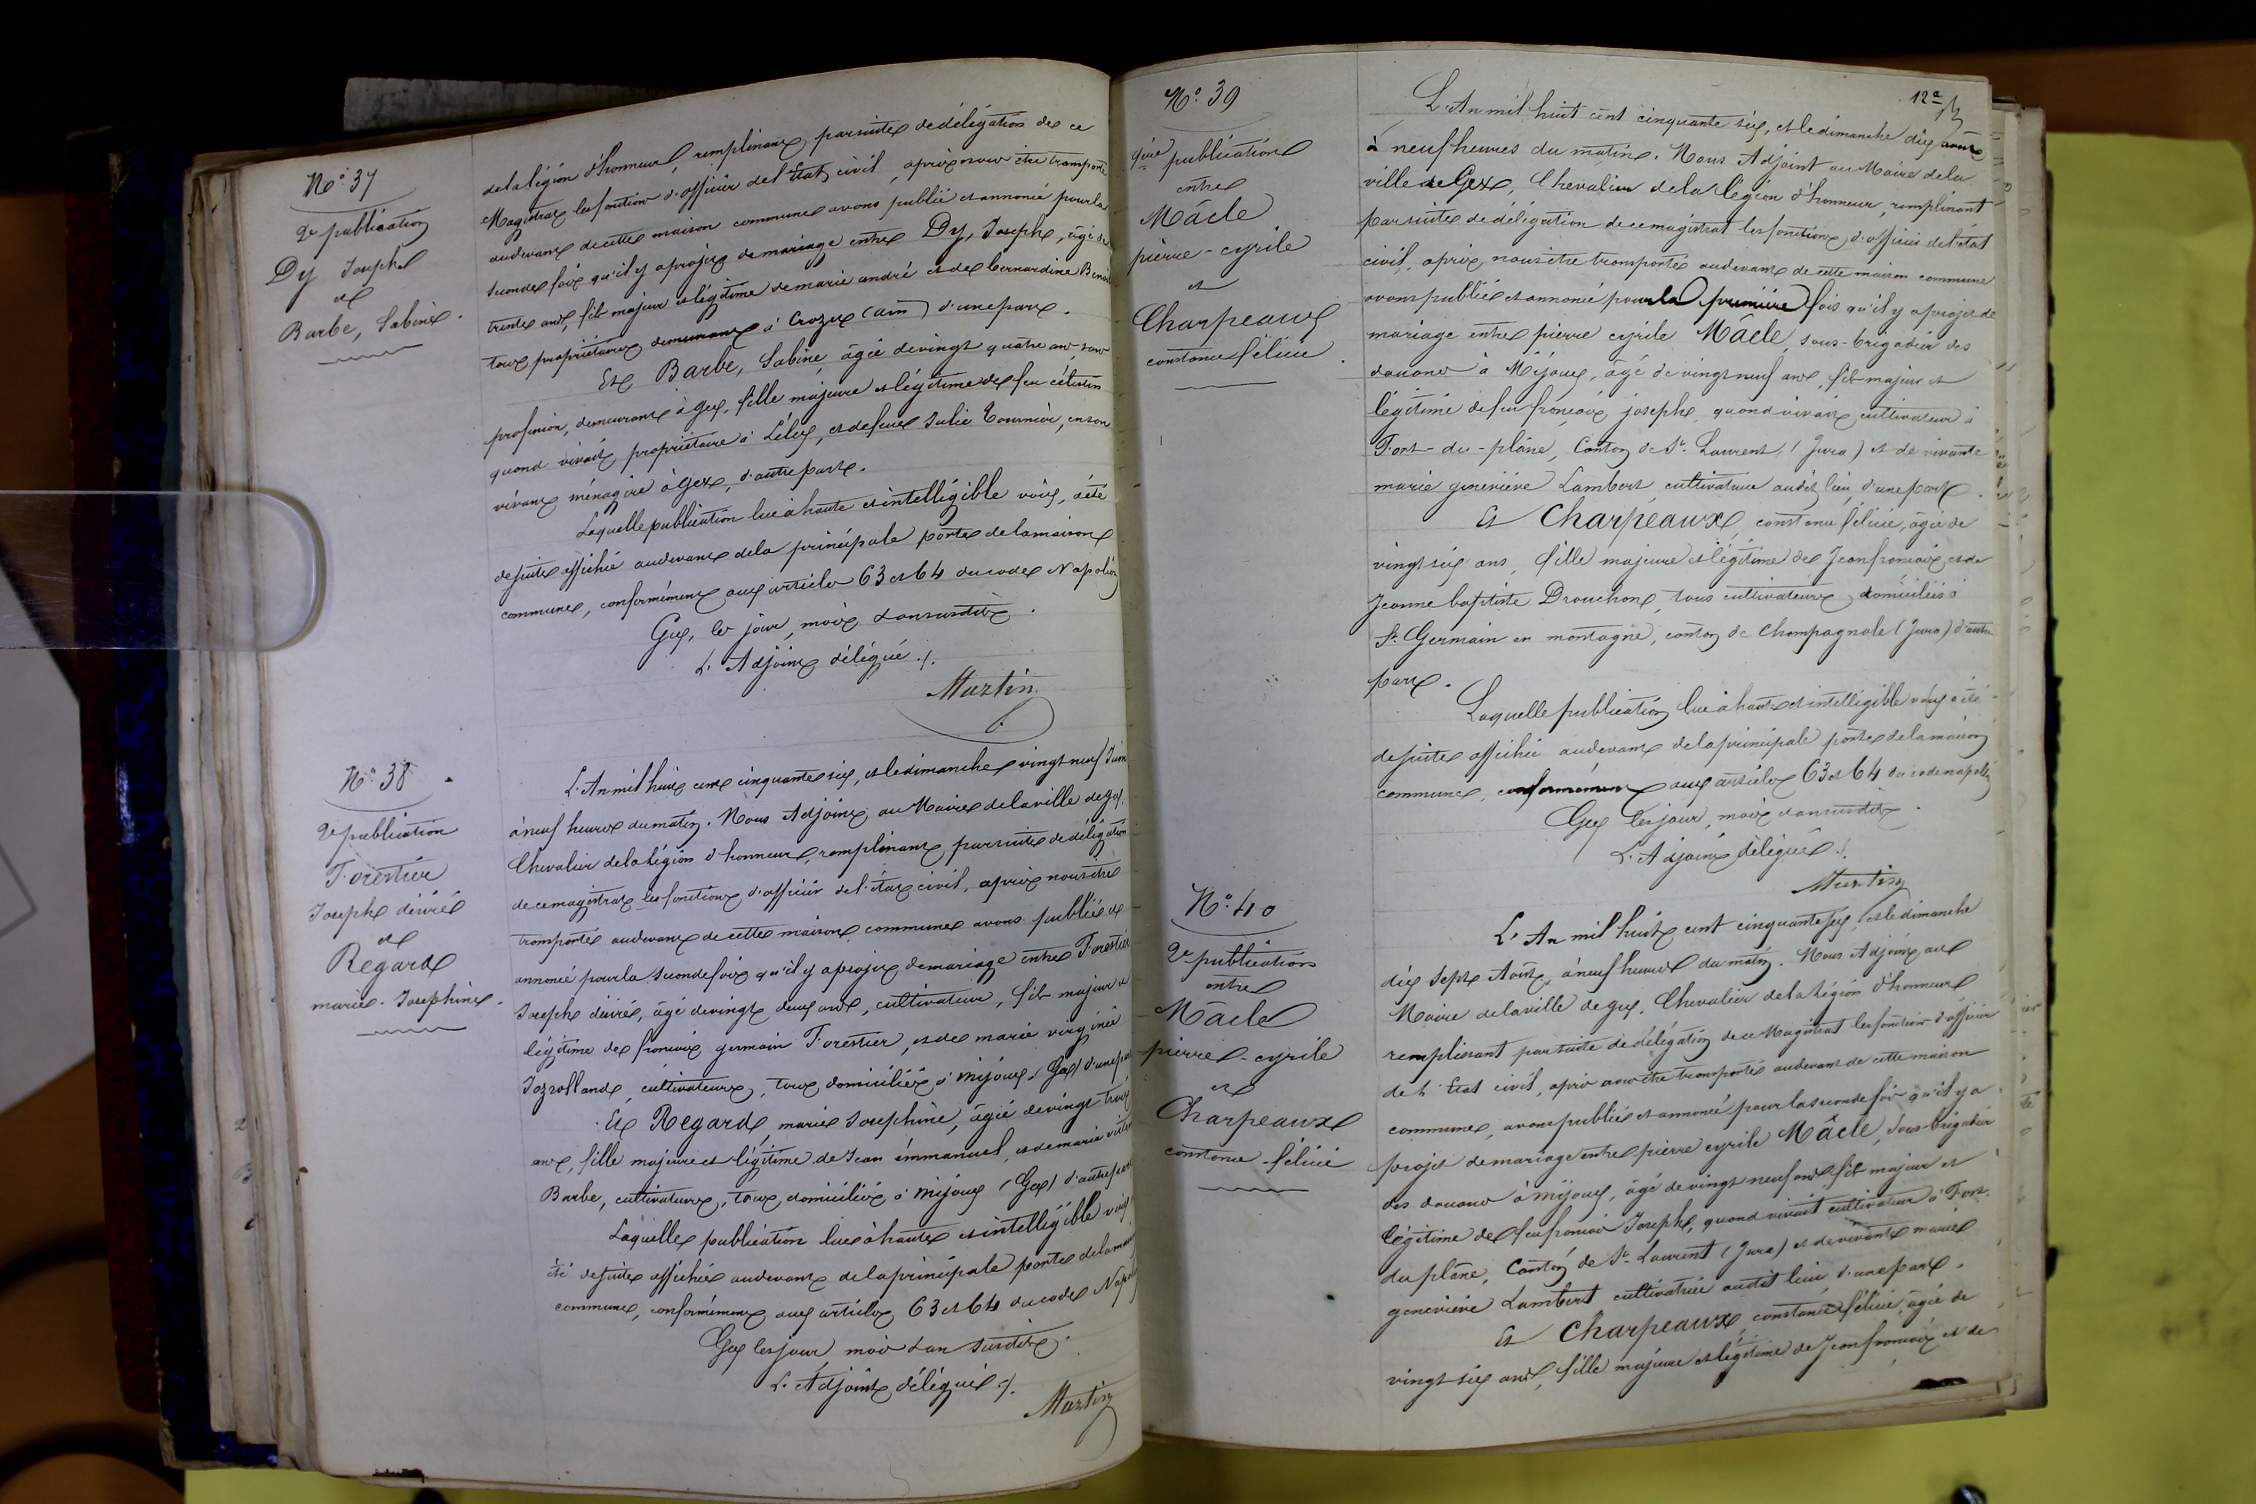 No. 37
2e publication
Dy Joseph
et
Barbe, Sabine.
de la légion d'honneur, remplinant par suite de délégation de ce
Magistrat les fonctions d'officier de l'État civil, après nous être transporté
au devant de cette maison commune avons publié et annoncé pour la
seconde fois qu'il y a projet de mariage entre Dy, Joseph, âgé de
trente ans, fils majeur et légitime de marie andré et de bernardine Benoit
tous propriétaires demeurant à Crozet (ain) d'une part.
Et Barbe, Sabine, âgée de vingt quatre ans, sans
profession, demeurant à Gex, fille majeure et légitime de feu célestin
quand vivait propriétaire à Lélex, et de feue Julie Tournier, en son
vivant ménagère à Gex, d'autre part.
Laquelle publication lue à haute et intelligible voix, a été
de suite affichée au devant de la principale porte de la maison
commune, conformément aux articles 63 et 64 du code Napoléon
Gex, les jour, mois et an susdits.
L'Adjoint délégué ./.
Martin
No. 38
2e publication
Forestier
Joseph désiré
et
Regard
marie-Josephine.
L'An mil huit cent cinquante six, et le dimanche vingt neuf Juin
à neuf heures du matin. Nous Adjoint au Maire de la ville de Gex,
Chevalier de la Légion d'honneur, remplinant par suite de délégation
de ce magistrat les fonctions d'officier de l'état civil, après nous être
transporté au devant de cette maison commune avons publié et
annoncé pour la seconde fois qu'il y a projet de mariage entre Forestier
Joseph désiré, âgé de vingt deux ans, cultivateur, fils majeur et
légitime de françois germain Forestier, et de marie virginie
cultivateurs, tous domiciliés à Mijoux (Gex) d'une part
Et Regard, marie Josephine, âgée de vingt trois
ans, fille majeure et légitime de Jean émmanuel, et de marie
Barbe, cultivateurs, tous domiciliés à Mijoux (Gex) d'autre part
Laquelle publication lue à haute et intelligible voix
été de suite affichée au devant de la principale porte de la maison
commune, conformément aux articles 63 et 64 du code Napoléon
Gex les jour mois et an susdits.
L'Adjoint délégué ./.
Martin
No. 39
1ère publication
entre
Mâcle
pierre-cyrile
et
Charpeaux
constance félicie.
12e
L'An mil huit cent cinquante six, et le dimanche dix août
à neuf heures du matin. Nous Adjoint au Maire de la
ville de Gex, Chevalier de la légion d'honneur, remplinant
par suite de délégation de ce magistrat les fonctions d'officier de l'état
civil, après nous être transporté au devant de cette maison commune
avons publié et annoncé pour la première fois qu'il y a projet de
mariage entre pierre cyrile Mâcle, sous-brigadier des
douanes à Mijoux, âgé de vingt neuf ans, fils majeur et
légitime de feu françois joseph, quand vivait cultivateur à
Fort-du-plâne, Canton de St Laurent, (Jura) et de vivante
marie geneviève Lambert, cultivatrice audit lieu, d'une part.
Et Charpeaux, constance félicie, âgée de
vingt six ans, fille majeure et légitime de Jean françois et de
Jeanne baptiste Drouchon, tous cultivateurs domiciliés à
St Germain en montagne, canton de Champagnole (Jura) d'autre
part.
Laquelle publication lue à haute et intelligible voix a été
de suite affichée au devant de la principale porte de la maison
commune, conformément aux articles 63 et 64 du code napoléon
Gex les jour, mois et an susdits.
L'Adjoint délégué ./.
Martin
No. 40
2e publication
entre
Mâcle
pierre-cyrile
et
Charpeaux
constance-félicie
L'An mil huit cent cinquante six, et le dimanche
dix sept Août, à neuf heures du matin. Nous Adjoint au
Maire de la ville de Gex, Chevalier de la Légion d'honneur
remplissant par suite de délégation de ce Magistrat les fonctions d'officier
de l'État civil, après nous être transporté au devant de cette maison
commune, avons publié et annoncé pour la seconde fois qu'il y a
projet de mariage entre pierre cyrile Mâcle, sous-brigadier
des douanes à Mijoux, âgé de vingt neuf ans, fils majeur et
légitime de feu françois Joseph, quand vivait cultivateur à Fort-
du plâne, Canton de St Laurent (Jura) et de vivante marie
geneviève Lambert cultivatrice audit lieu, d'une part.
Et Charpeaux constance félicie, âgée de
vingt six ans, fille majeure et légitime de Jean françois et de